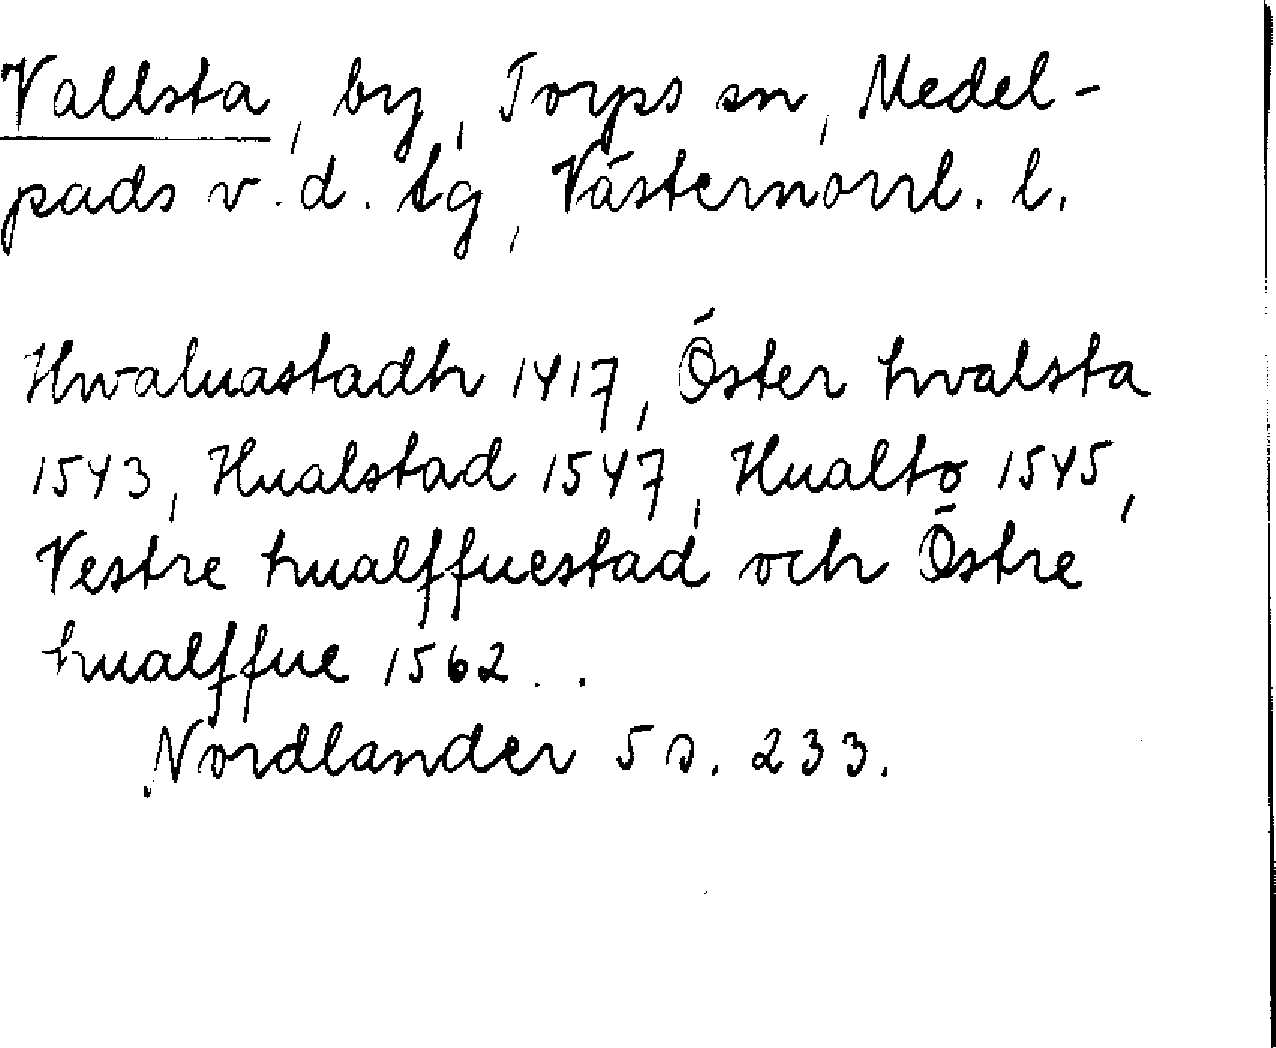 Vallsta, by, Torps sn, Medel-
pads v. d. tg, Västernorrl. l.
Hwaluastadh 1417, Öster hvalsta
1543, Hualstad 1547, Hualto 1545,
Vestre hualffuestad och Östre
hualffue 1562. .
Nordlander 5 s. 233.